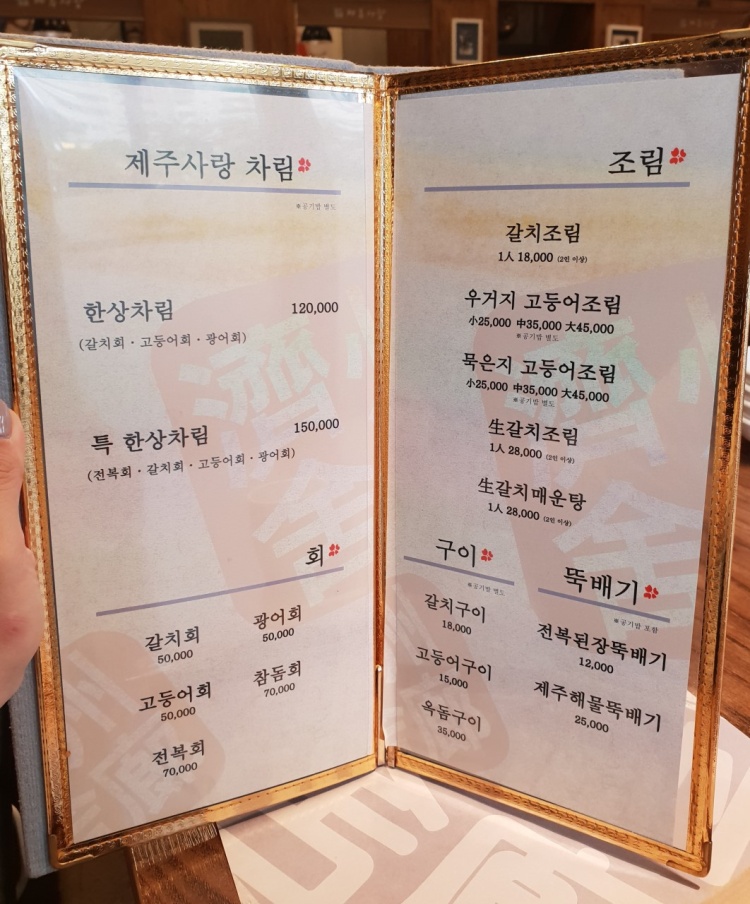 제주사랑 차림
※공기밥 별도
한상차림 120,000
(갈치회·고등어회·광어회)
특 한상차림 150,000
(전복회·갈치회·고등어회·광어회)
회
갈치회
50,000
광어회
50,000
고등어회
50,000
참돔회
70,000
전복회
70,000
조림
갈치조림
1人 18,000 (2인 이상)
우거지 고등어조림
小25,000 中35,000 大45,000
※공기밥 별도
묵은지 고등어조림
小25,000 中35,000 大45,000
※공기밥 별도
生갈치조림
1人 28,000 (2인 이상)
生갈치매운탕
1人 28,000 (2인 이상)
구이
※공기밥 별도
갈치구이
18,000
고등어구이
15,000
옥돔구이
35,000
뚝배기
※공기밥 포함
전복된장뚝배기
12,000
제주해물뚝배기
25,000